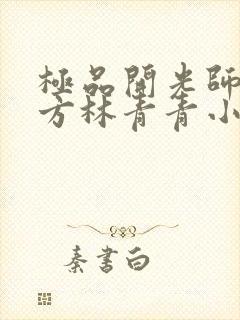 極品開光師
方林青青小
秦書白